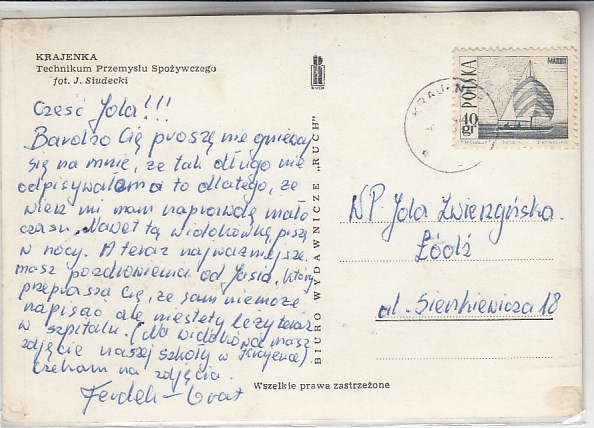 KRAJENKA
Technikum Przemysłu Spożywczego
fot. J. Siudecki
Cześć Jola!!!
Bardzo Cię proszę nie gniewaj
się na mnie, że tak długo nie
odpisywałam a to dlatego, że
wiesz mi mam naprawdę mało
czasu. Nawet tą widokówkę piszę
w nocy. A teraz najważniejsze
masz pozdrowienia od Jasia, który
przeprasza Cię, że sam niemoże
napisać ale niestety leży teraz
w szpitalu. (Na widokówce masz
zdjęcie naszej szkoły w Krajence)
Czekam na zdjęcia.
BIURO WYDAWNICZE „RUCH"
Wszelkie prawa zastrzeżone
POLSKA
40 gr
NP. Jola Zwierzgińska
Łódź
ul. Sienkiewicza 18